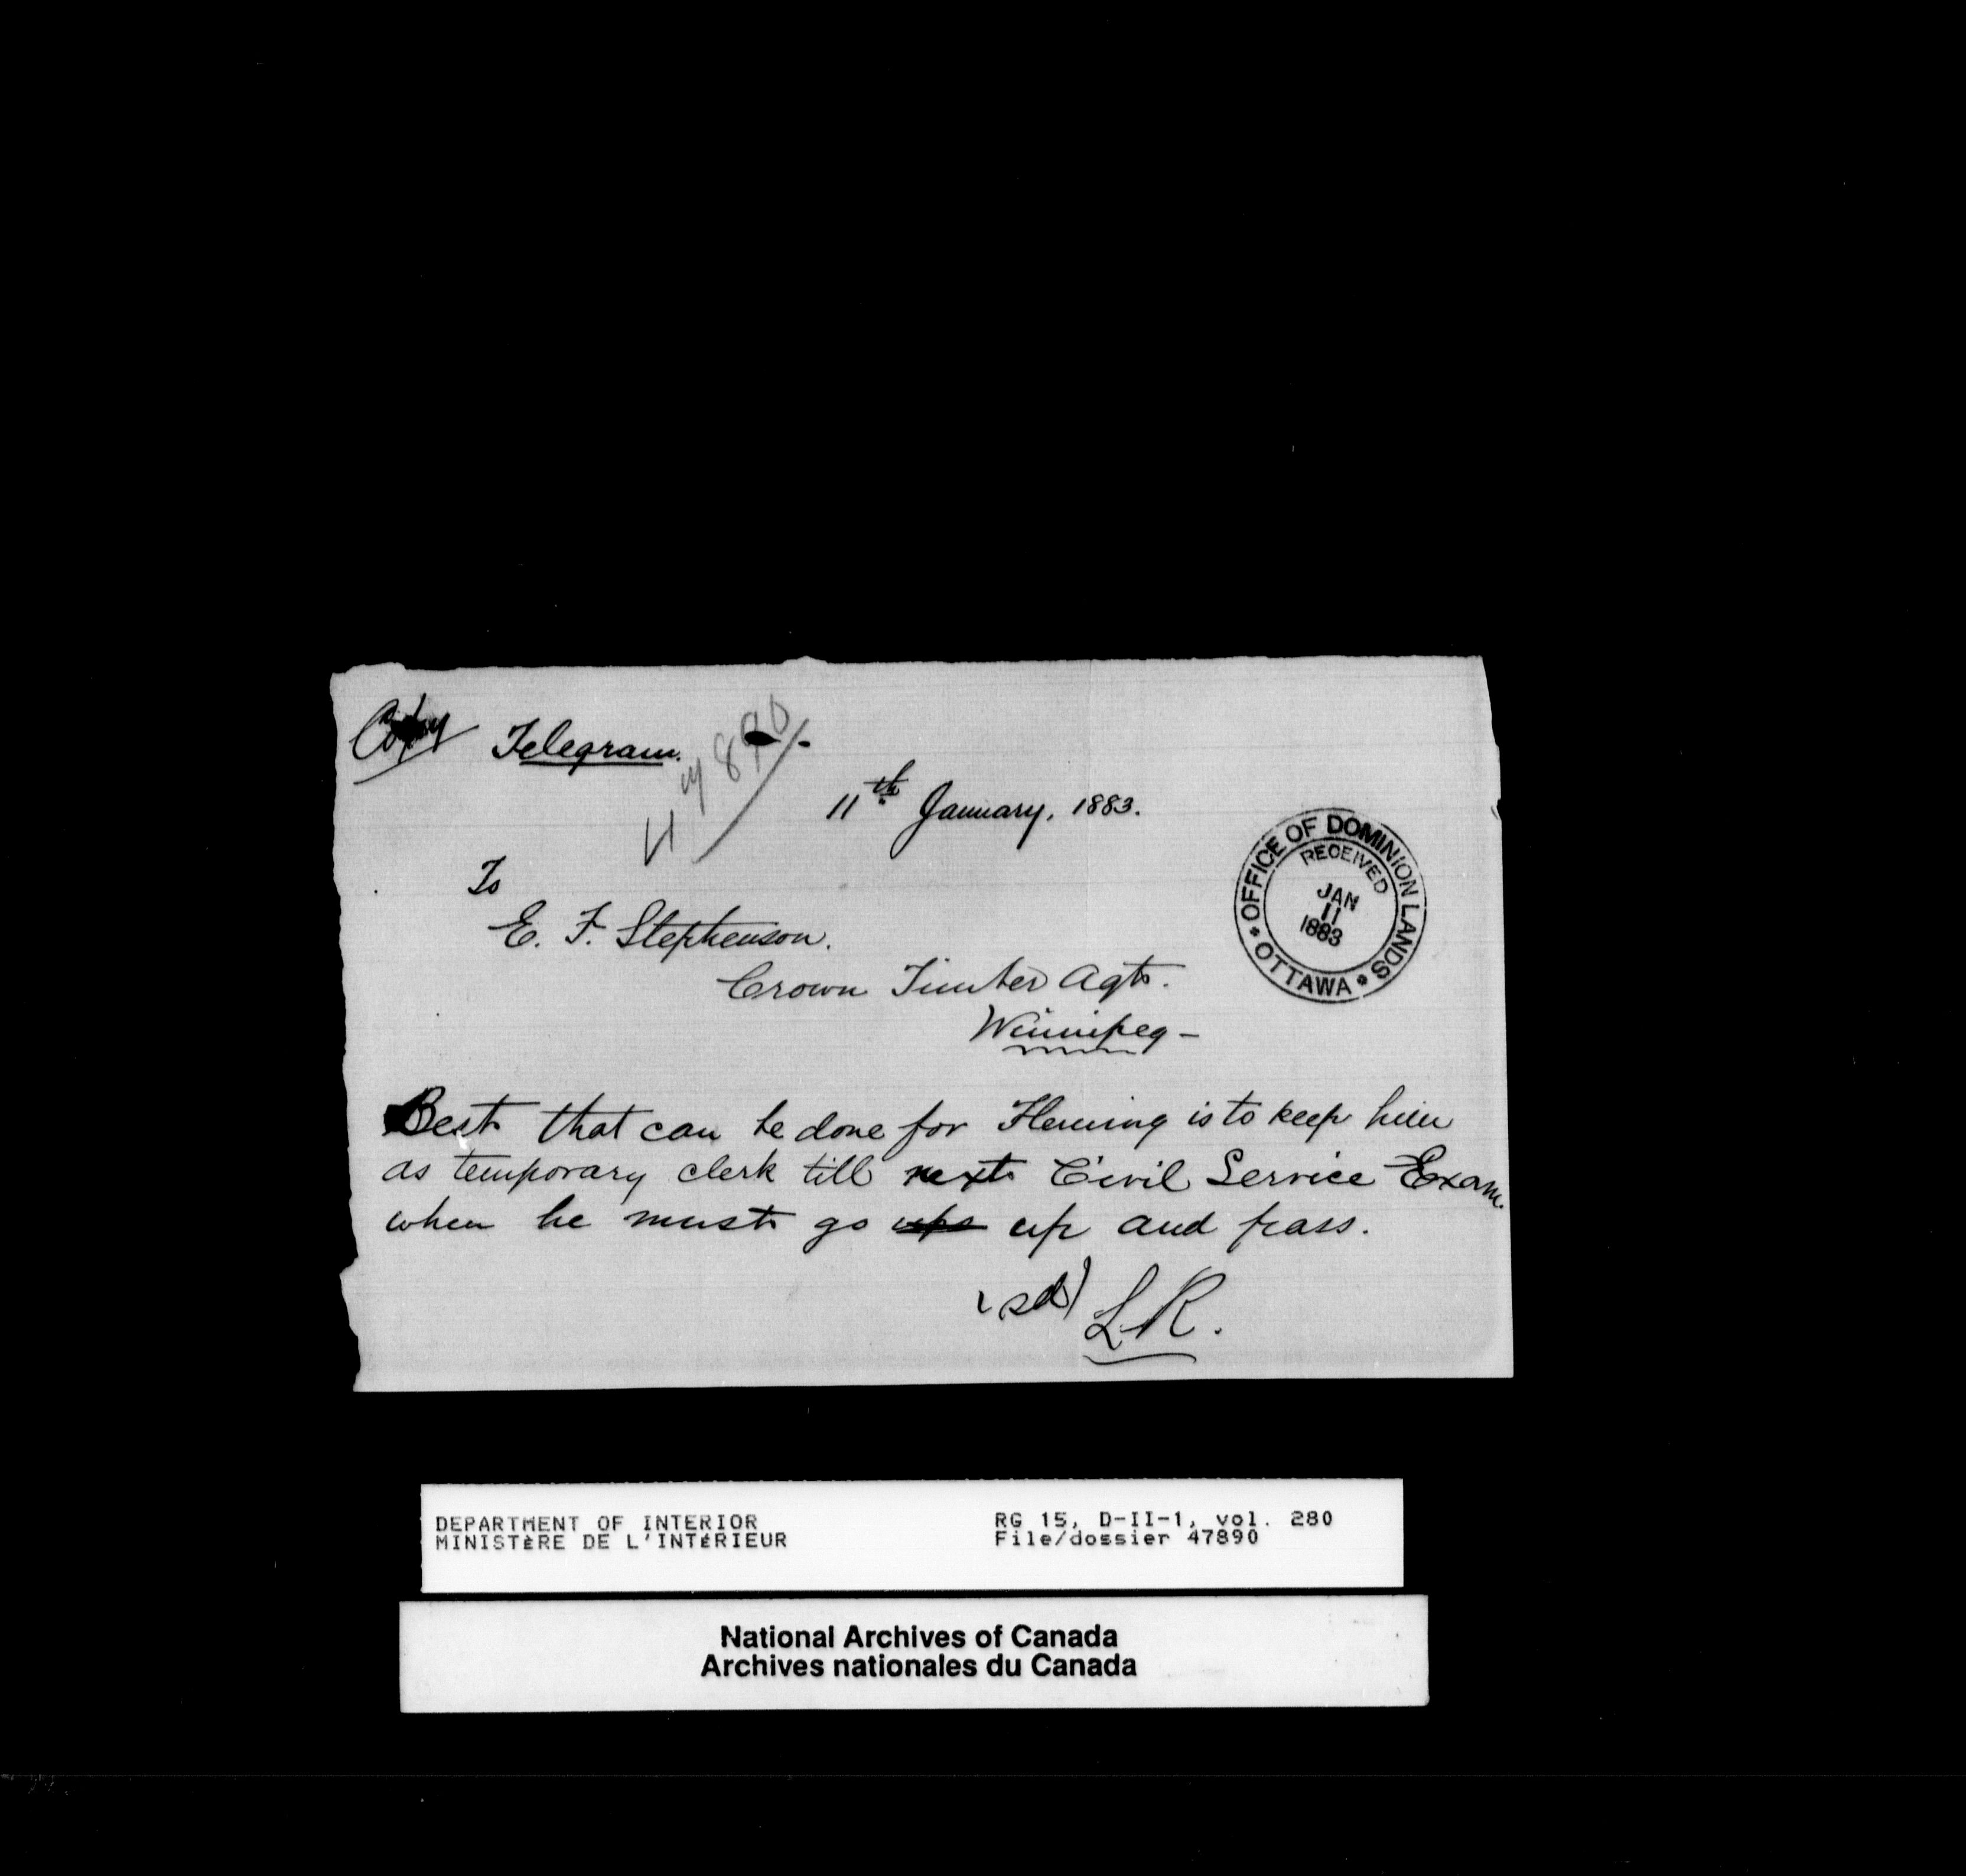 Copy Telegram.
47890
11th January, 1883.
OFFICE OF DOMINION LANDS
RECEIVED
JAN
11
1883
OTTAWA
To
E. F. Stephenson.
Crown Timber Agt.
Winnipeg -
Best that can be done for Fleming is to keep him
as temporary clerk till next Civil Service Exam.
when he must go ups up and pass.
(sd) L.R.
DEPARTMENT OF INTERIOR
MINISTÈRE DE L'INTÉRIEUR
RG 15, D-II-1, vol. 280
File/dossier 47890
National Archives of Canada
Archives nationales du Canada